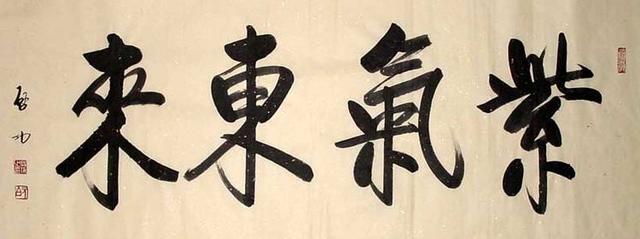 紫氣東來
啓功